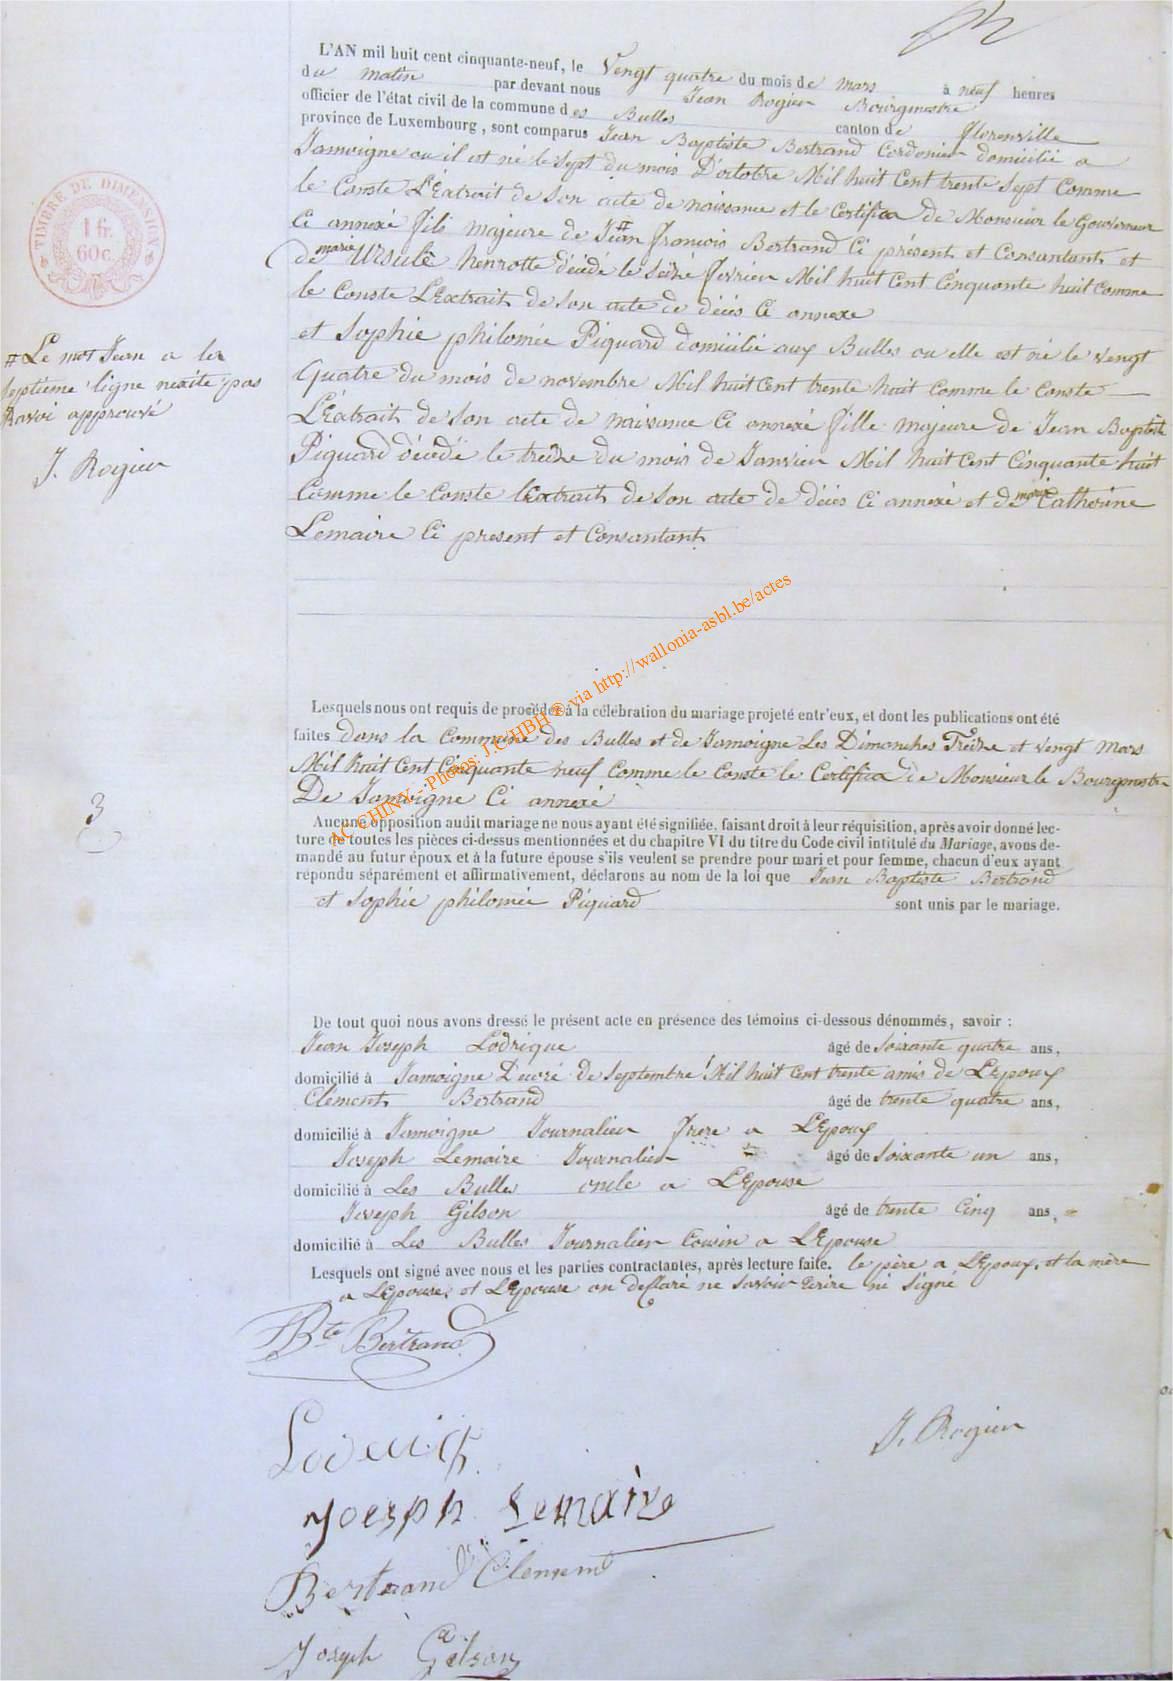 L'AN mil huit cent cinquante-neuf, le Vengt quatre du mois de mars à neuf heures
du matin par devant nous Jean Rogier Bourgmestre
officier de l'état civil de la commune des Bulles canton de Florenville
province de Luxembourg, sont comparus Jean Baptiste Bertrand Cordonier domicilié a
Jamoigne ou il est né le Sept du mois D'octobre Mil huit Cent trente Sept Comme
le Conste L'Extrait de Son acte de naissance et le Certifica de Monsieur le Gouverneur
TIMBRE DE DIMENSION
1 fr.
60 c.
Ci annexé fils majeure de # Jean François Bertrand Ci présent et Consantant et
de marie Ursule henrotte décédé le Seize fevrier Mil huit Cent Cinquante huit Comme
le Conste L'Extrait de Son acte de décès Ci annexe
et Sophie philomée Piquard domicilié aux Bulles ou elle est né le vengt
# Le mot Jean a la
Septième ligne nexite pas
Ravoi approuvé
J. Rogier
Quatre du mois de novembre Mil huit Cent trente huit Comme le Conste
L'Extrait de Son acte de naissance Ci annexé fille majeure de Jean Baptiste
Piquard décédé le treize du mois de Janvier Mil huit Cent Cinquante huit
Comme le Conste l'Extrait de Son acte de décès Ci annexé et de marie Catherine
Lemaire Ci present et Consantant
AC CHINY - Photos: J.C/HBH ® via http://wallonia-asbl.be/actes
Lesquels nous ont requis de procéder à la célébration du mariage projeté entr'eux, et dont les publications ont été
faites dans la Commune des Bulles et de Jamoigne Les Dimanches Treize et vengt Mars
Mil huit Cent Cinquante neuf Comme le Conste le Certifica de Monsieur le Bourgmestre
De Jamoigne Ci annexé
3
Aucune opposition audit mariage ne nous ayant été signifiée, faisant droit à leur réquisition, après avoir donné lec-
ture de toutes les pièces ci-dessus mentionnées et du chapitre VI du titre du Code civil intitulé du Mariage, avons de-
mandé au futur époux et à la future épouse s'ils veulent se prendre pour mari et pour femme, chacun d'eux ayant
répondu séparément et affirmativement, déclarons au nom de la loi que Jean Baptiste Bertrand
et Sophie philomée Piquard sont unis par le mariage.
De tout quoi nous avons dressé le présent acte en présence des témoins ci-dessous dénommés, savoir :
Jean Joseph Lodrique âgé de Soixante quatre ans,
domicilié à Jamoigne Décoré de Septembre Mil huit Cent trente amis de L'Epoux
Clément Bertrand âgé de trente quatre ans,
domicilié à Jamoigne Journalier frere a L'Epoux
Joseph Lemaire Journalier âgé de Soixante un ans,
domicilié à Les Bulles oncle a L'Epouse
Joseph Gilson âgé de trente Cinq ans,
domicilié à Les Bulles Journalier Cousin a L'Epouse
Lesquels ont signé avec nous et les parties contractantes, après lecture faite. le père a L'Epoux, et la mère
a L'Epouse, et L'Epouse on déclaré ne Savoir Ecrire ni Signé
JBte Bertrand
J. Rogier
Joesph Lemaire
Bertrand Clement
Joseph Gilson